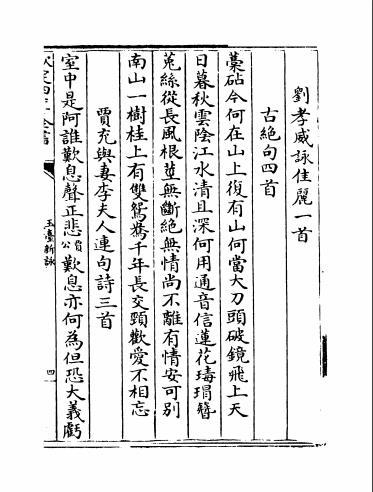 劉孝威詠佳麗一首
古絶句四首
藁砧今何在山上復有山何當大刀頭破鏡飛上天
日暮秋雲陰江水清且深何用通音信蓮花瑇瑁簪
菟絲從長風根莖無斷絶無情尚不離有情安可别
南山一樹桂上有雙鴛鴦千年長交頸歡愛不相忘
賈充與妻李夫人連句詩三首
室中是阿誰歎息聲正悲賈公歎息亦何為但恐大義虧
欽定四庫全書
玉臺新詠
四